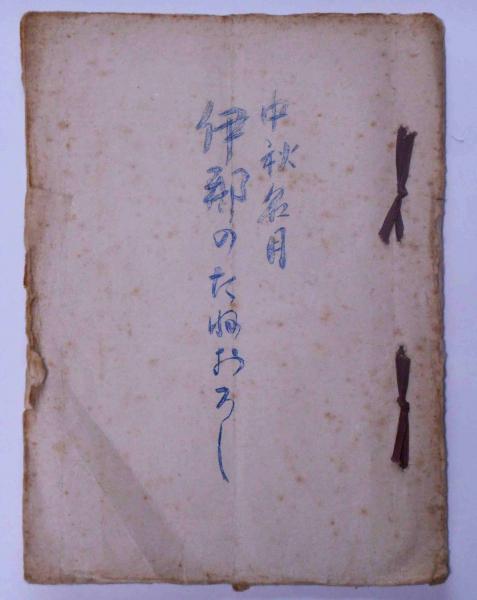 中秋名月
伊那のたねおろし